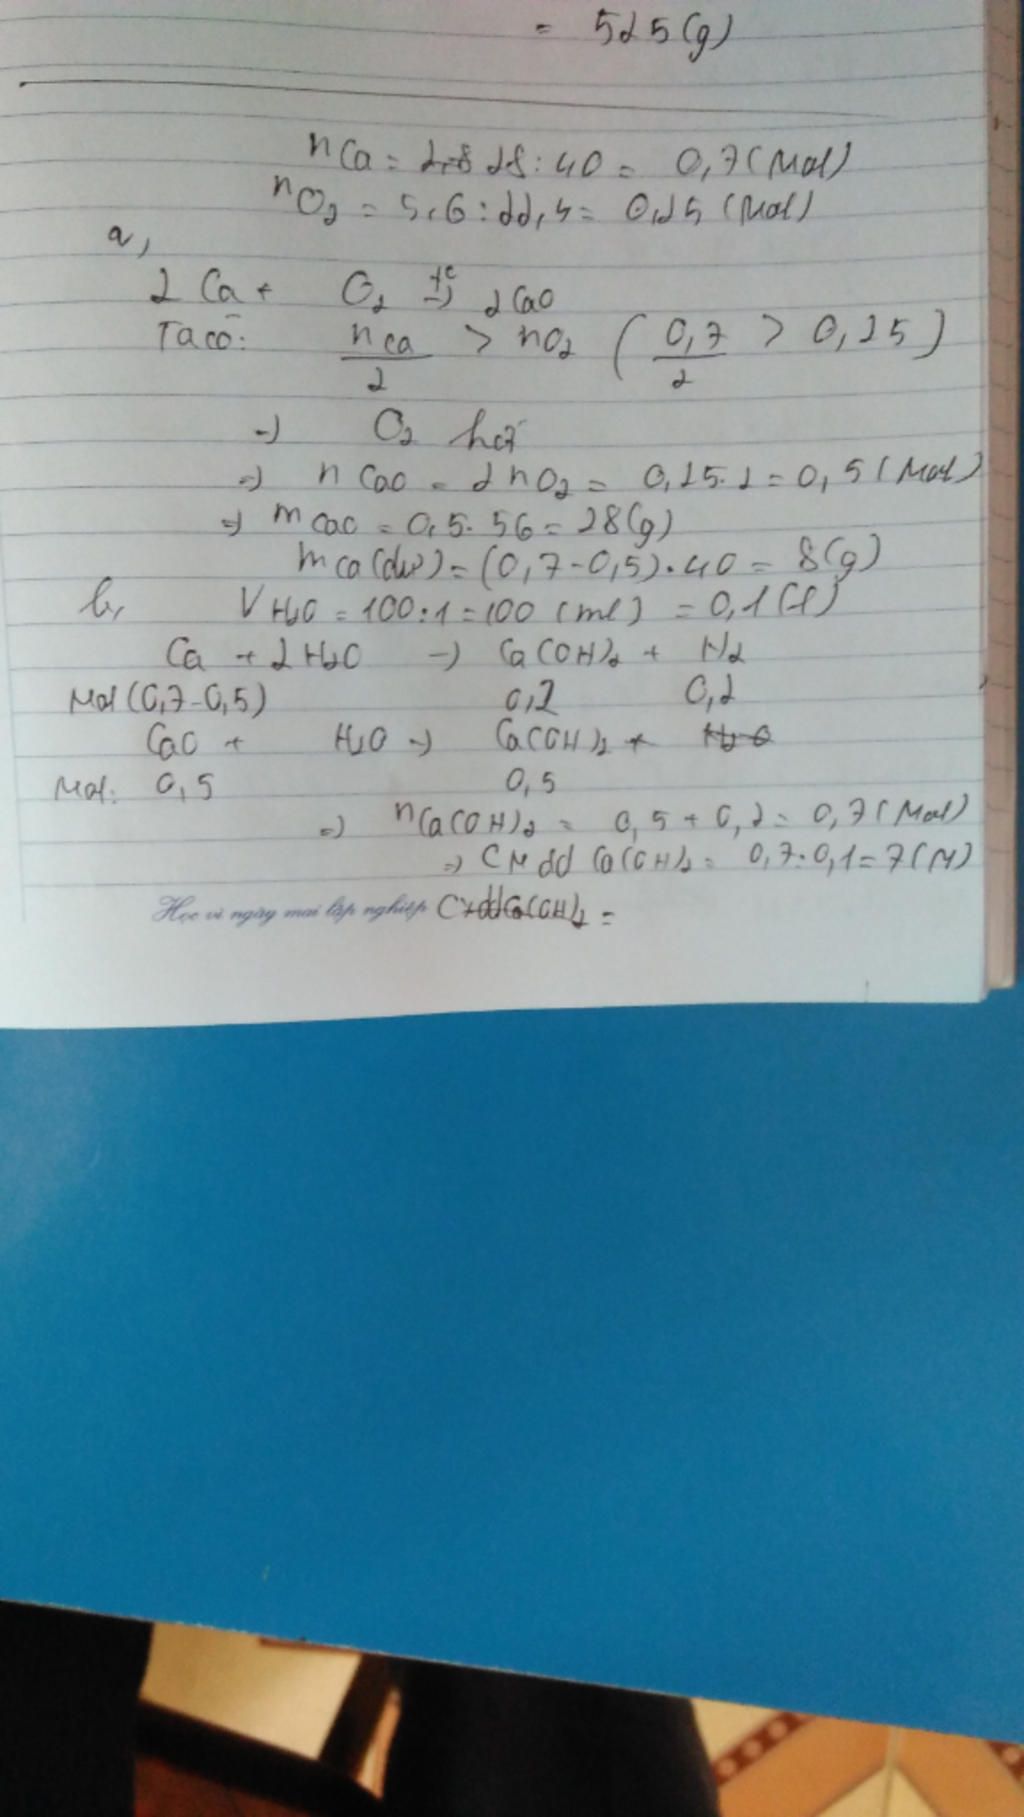 = 525(g)
nCa = 28 : 40 = 0,7 (Mol)
nO2 = 5,6 : 22,4 = 0,25 (Mol)
a,
2Ca + O2 t°→ 2CaO
Ta có: nCa/2 > nO2 ( 0,7/2 > 0,25 )
→ O2 hết
⇒ nCaO = 2nO2 = 0,25.2 = 0,5 (Mol)
⇒ mCaO = 0,5 . 56 = 28(g)
mCa(dư) = (0,7-0,5).40 = 8(g)
b, VH2O = 100:1 = 100 (ml) = 0,1(l)
Ca + 2H2O → Ca(OH)2 + H2
Mol (0,7-0,5) 0,2 0,2
CaO + H2O → Ca(OH)2
Mol: 0,5 0,5
⇒ nCa(OH)2 = 0,5 + 0,2 = 0,7 (Mol)
⇒ CM dd Ca(OH)2 = 0,7:0,1 = 7(M)
Học vì ngày mai lập nghiệp C% dd Ca(OH)2 =